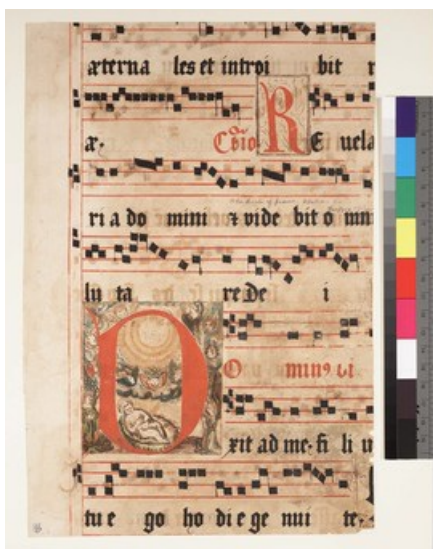 æterna les et introi bit r
æ. Cōio RE uela
ri a do mini & vide bit o mn
lu ta re De i
DO minꝰ di
xit ad me. fi li u
tu e go ho di e ge nui te.